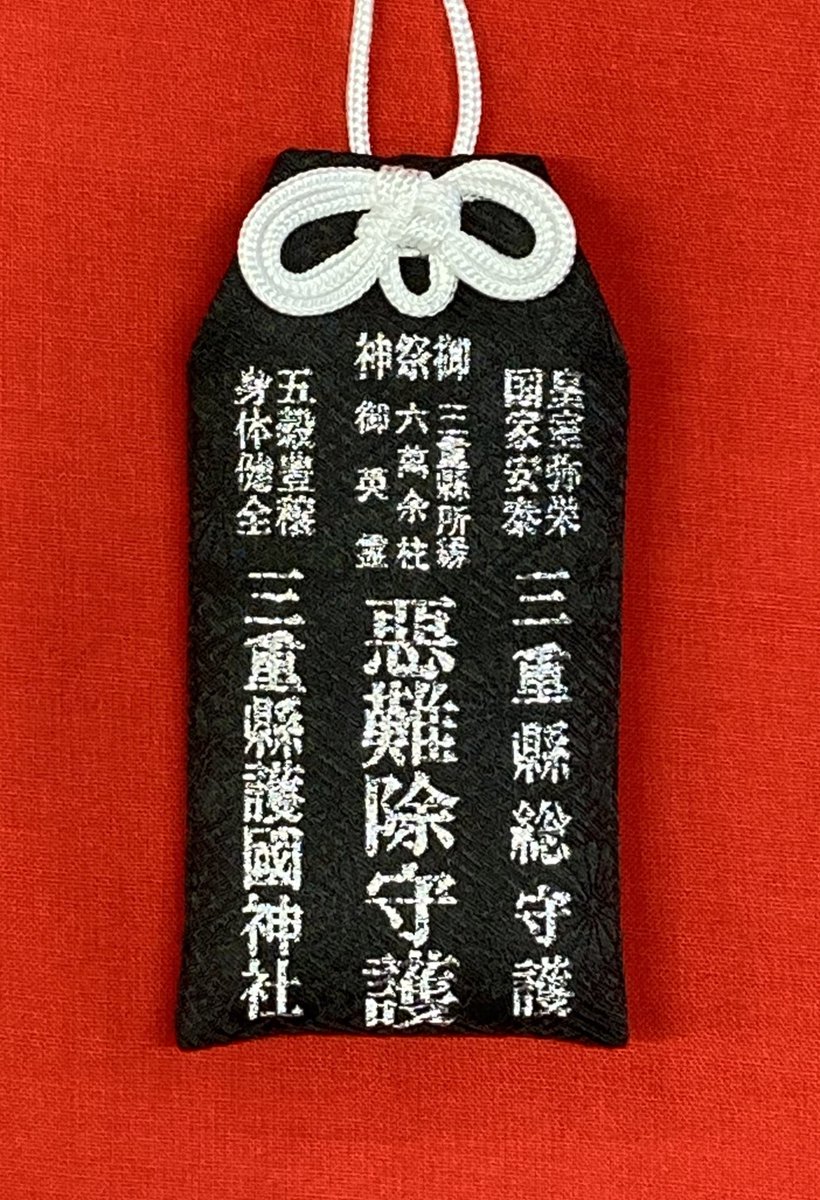 皇室弥栄
国家安泰
三重縣総守護
御祭神
三重縣所縁
六萬余柱
御英霊
惡難除守護
五穀豊穣
身体健全
三重縣護國神社